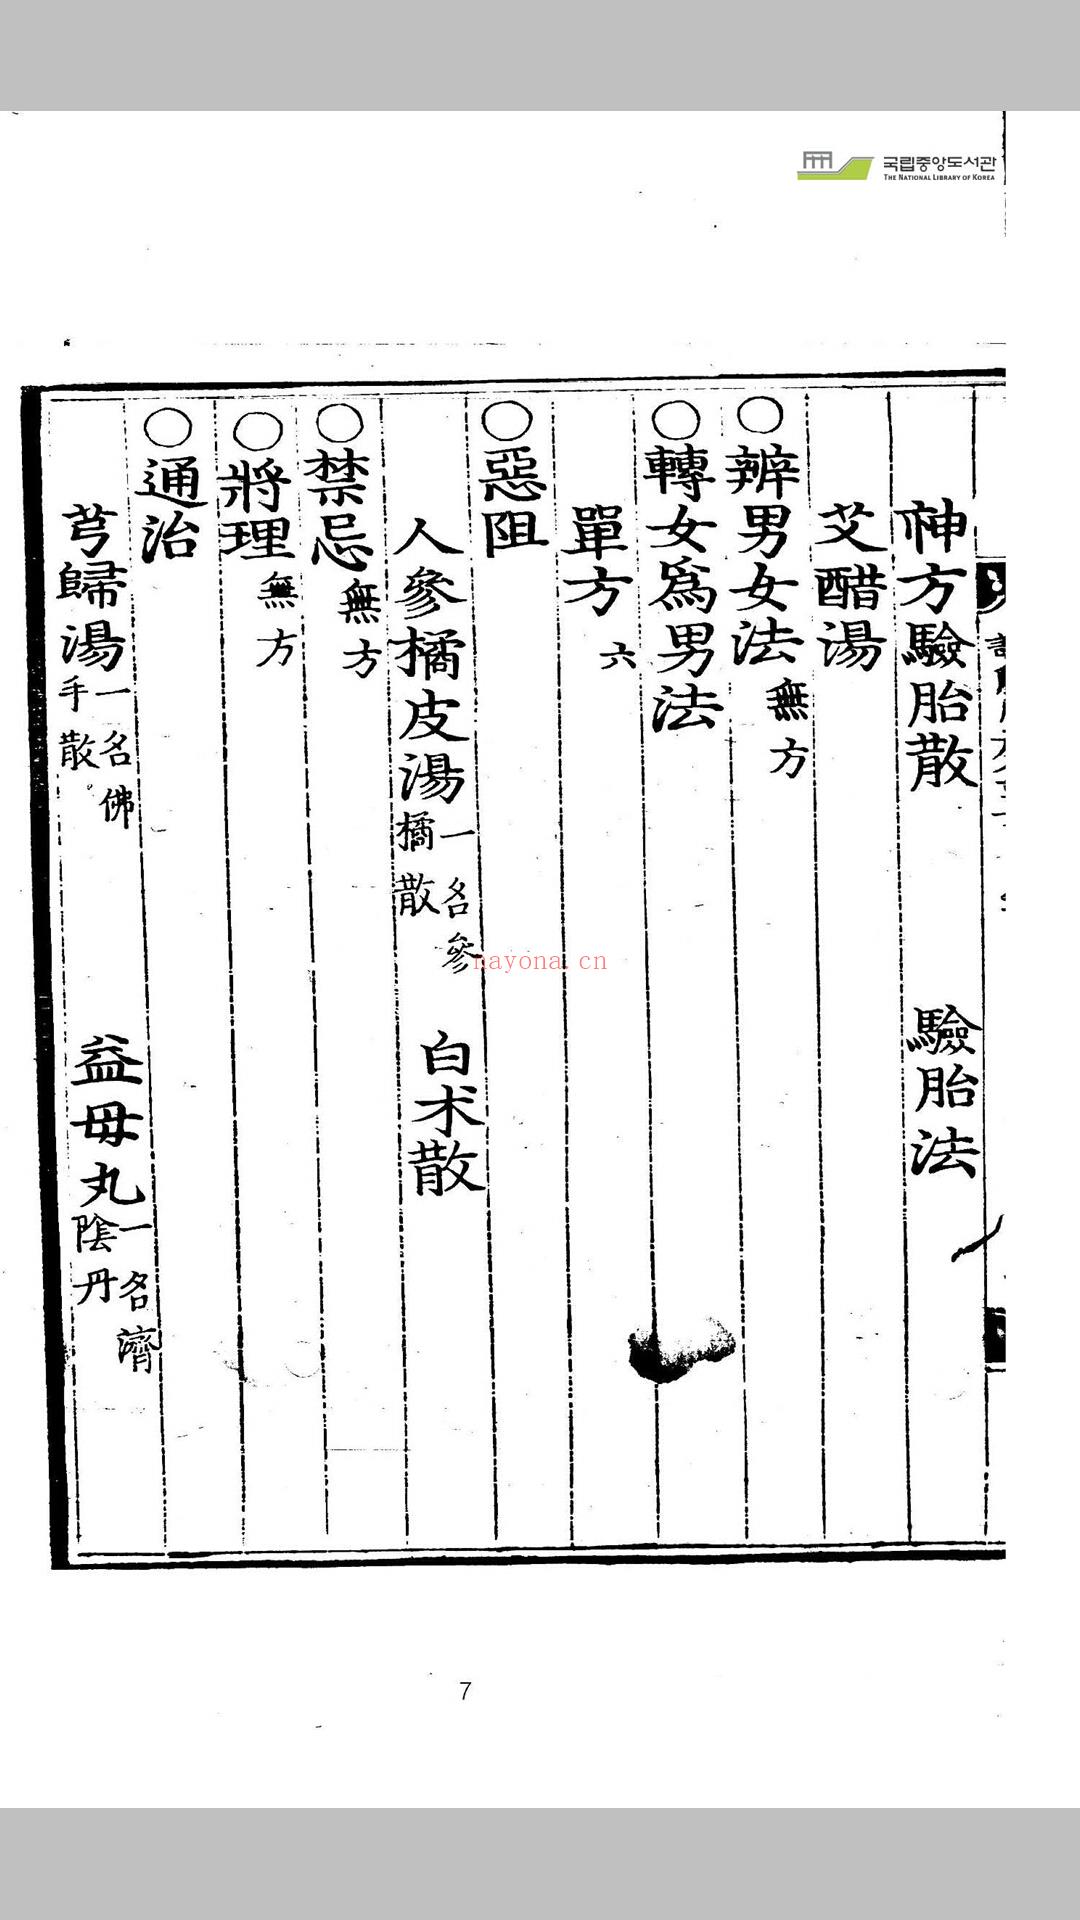 국립중앙도서관
THE NATIONAL LIBRARY OF KOREA
神方驗胎散 驗胎法
艾醋湯
○辨男女法 無方
○轉女爲男法
單方 六
○惡阻
人參橘皮湯 一名參橘散 白朮散
○禁忌 無方
○將理 無方
○通治
芎歸湯 一名佛手散 益母丸 一名濟陰丹
nayona.cn
7